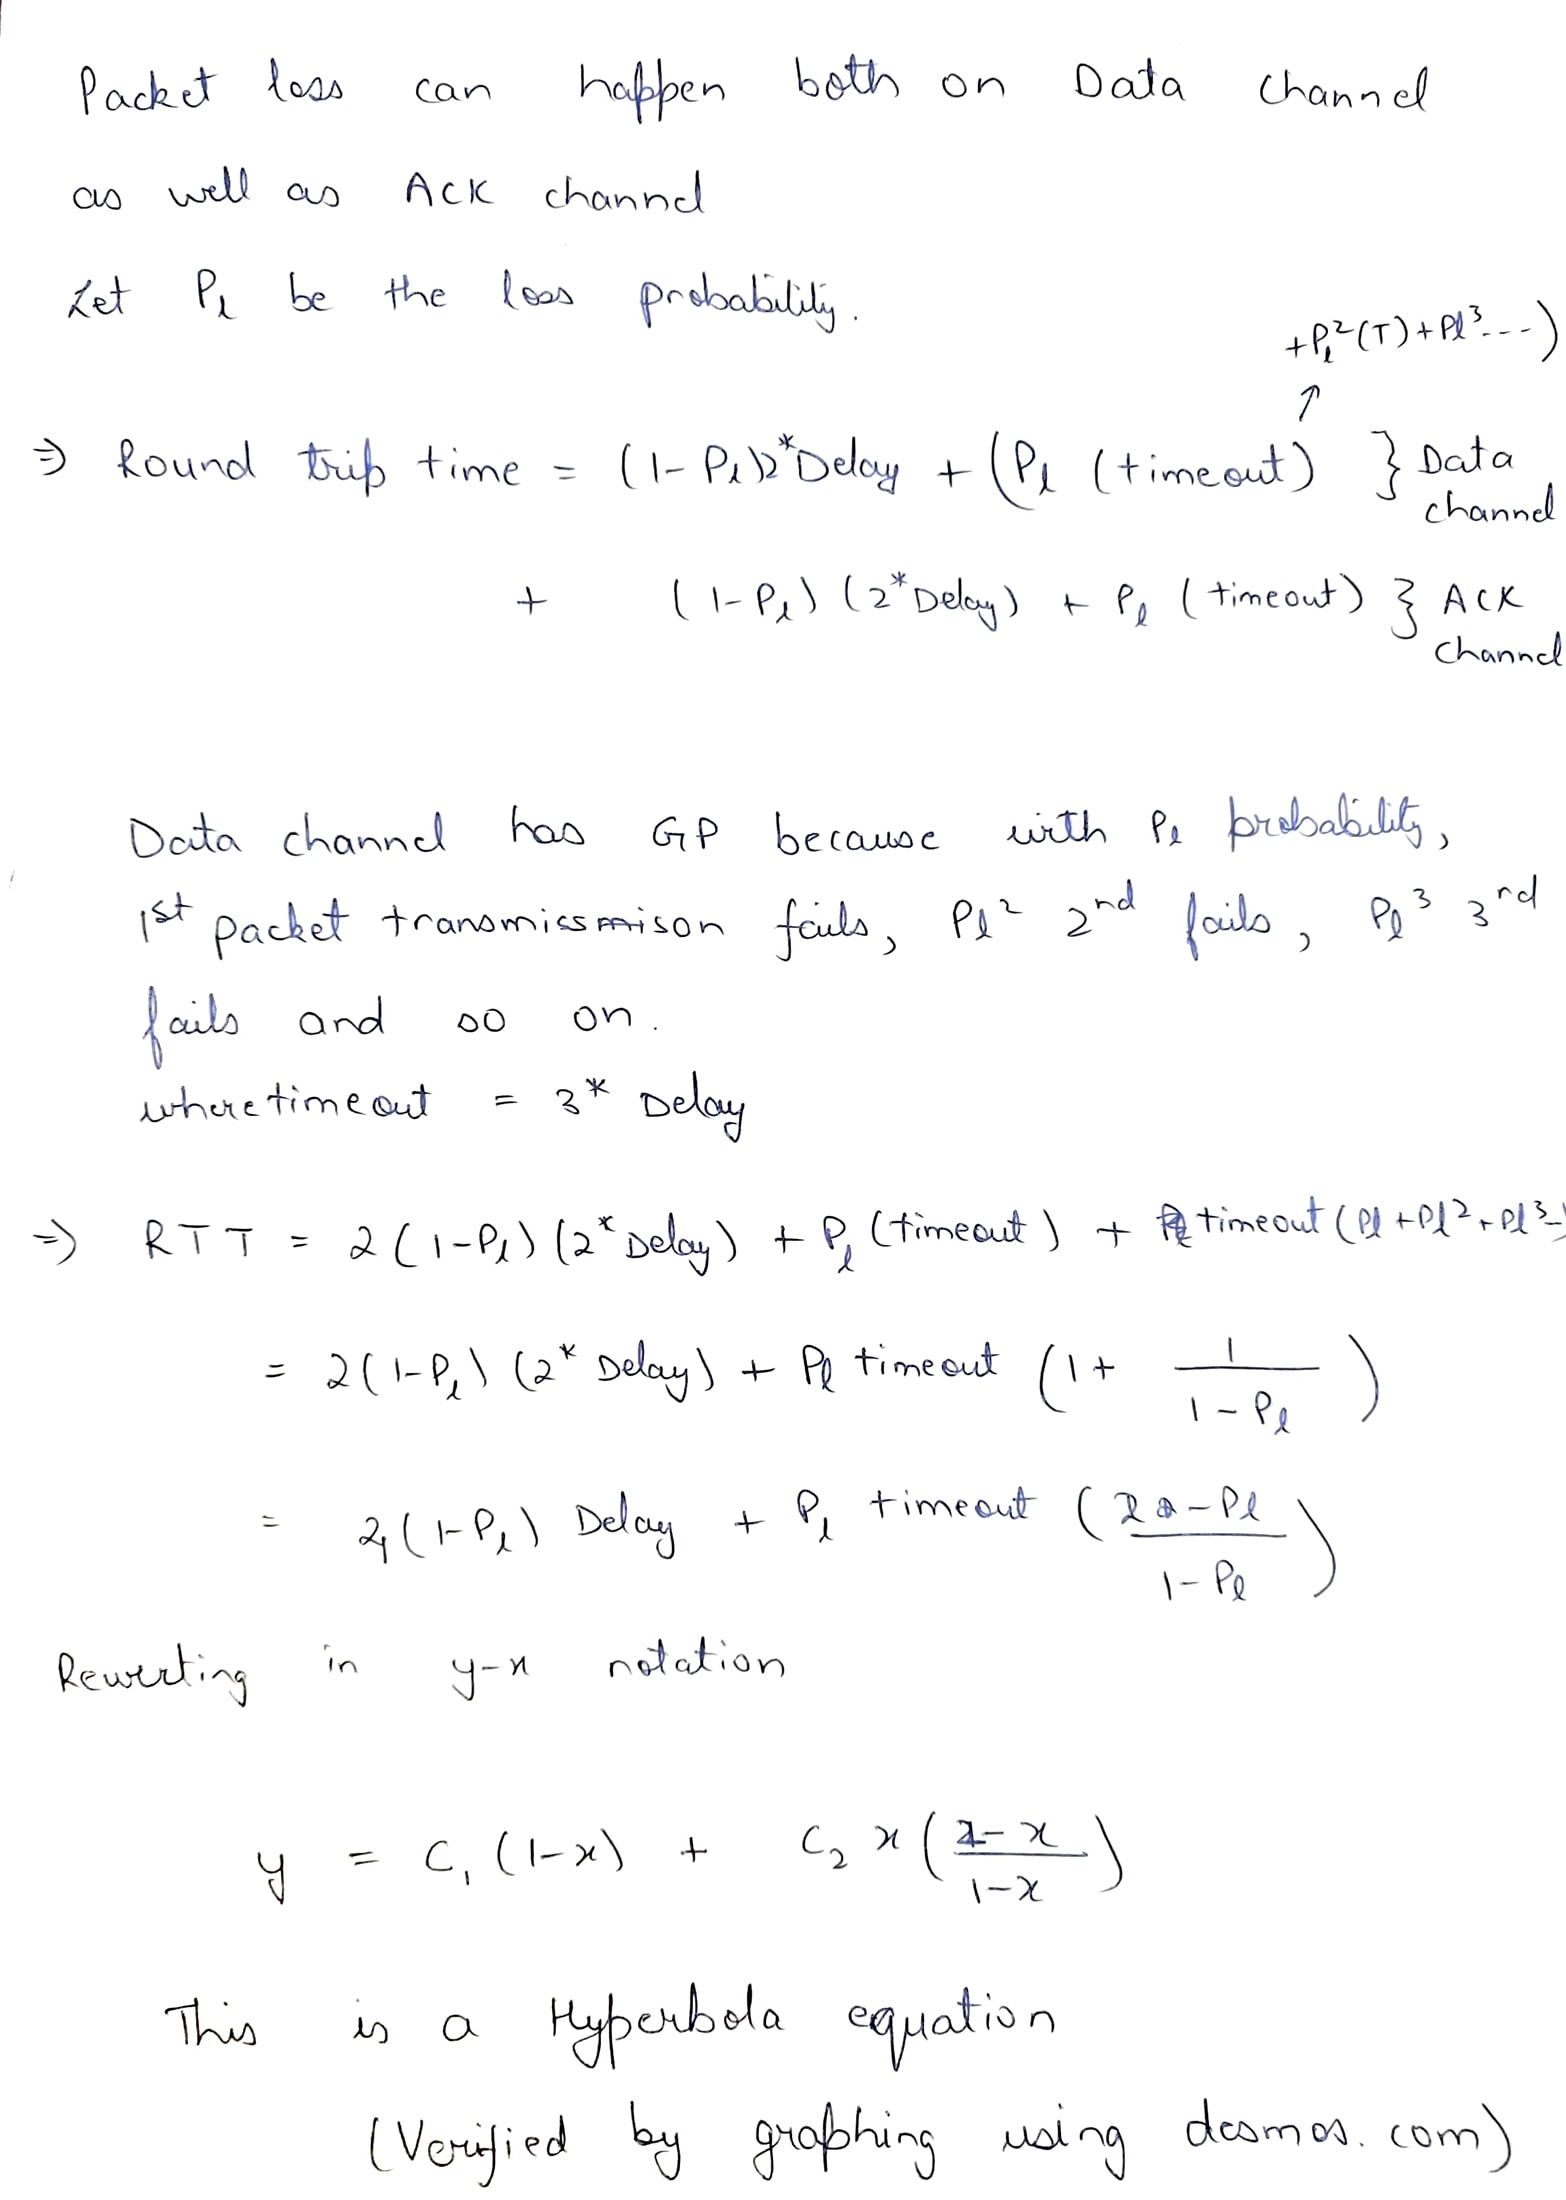 Packet loss can happen both on Data channel
as well as ACK channel
Let Pl be the loss probability.
+Pl²(T) + Pl³ ---)
↑
⇒ Round trip time = (1-Pl)2*Delay + (Pl (timeout) } Data channel
+ (1-Pl) (2*Delay) + Pl (timeout) } ACK channel
Data channel has GP because with Pl probability,
1st packet transmissmison fails, Pl² 2nd fails, Pl³ 3rd
fails and so on.
where timeout = 3* Delay
⇒ RTT = 2(1-Pl) (2*Delay) + Pl (timeout) + timeout (Pl + Pl² + Pl³-
= 2(1-Pl) (2* Delay) + Pl timeout (1 + 1/(1-Pl))
= 4(1-Pl) Delay + Pl timeout ((2-Pl)/(1-Pl))
Rewriting in y-x notation
y = C₁ (1-x) + C₂ x ((2-x)/(1-x))
This is a Hyperbola equation
(Verified by graphing using desmos.com)